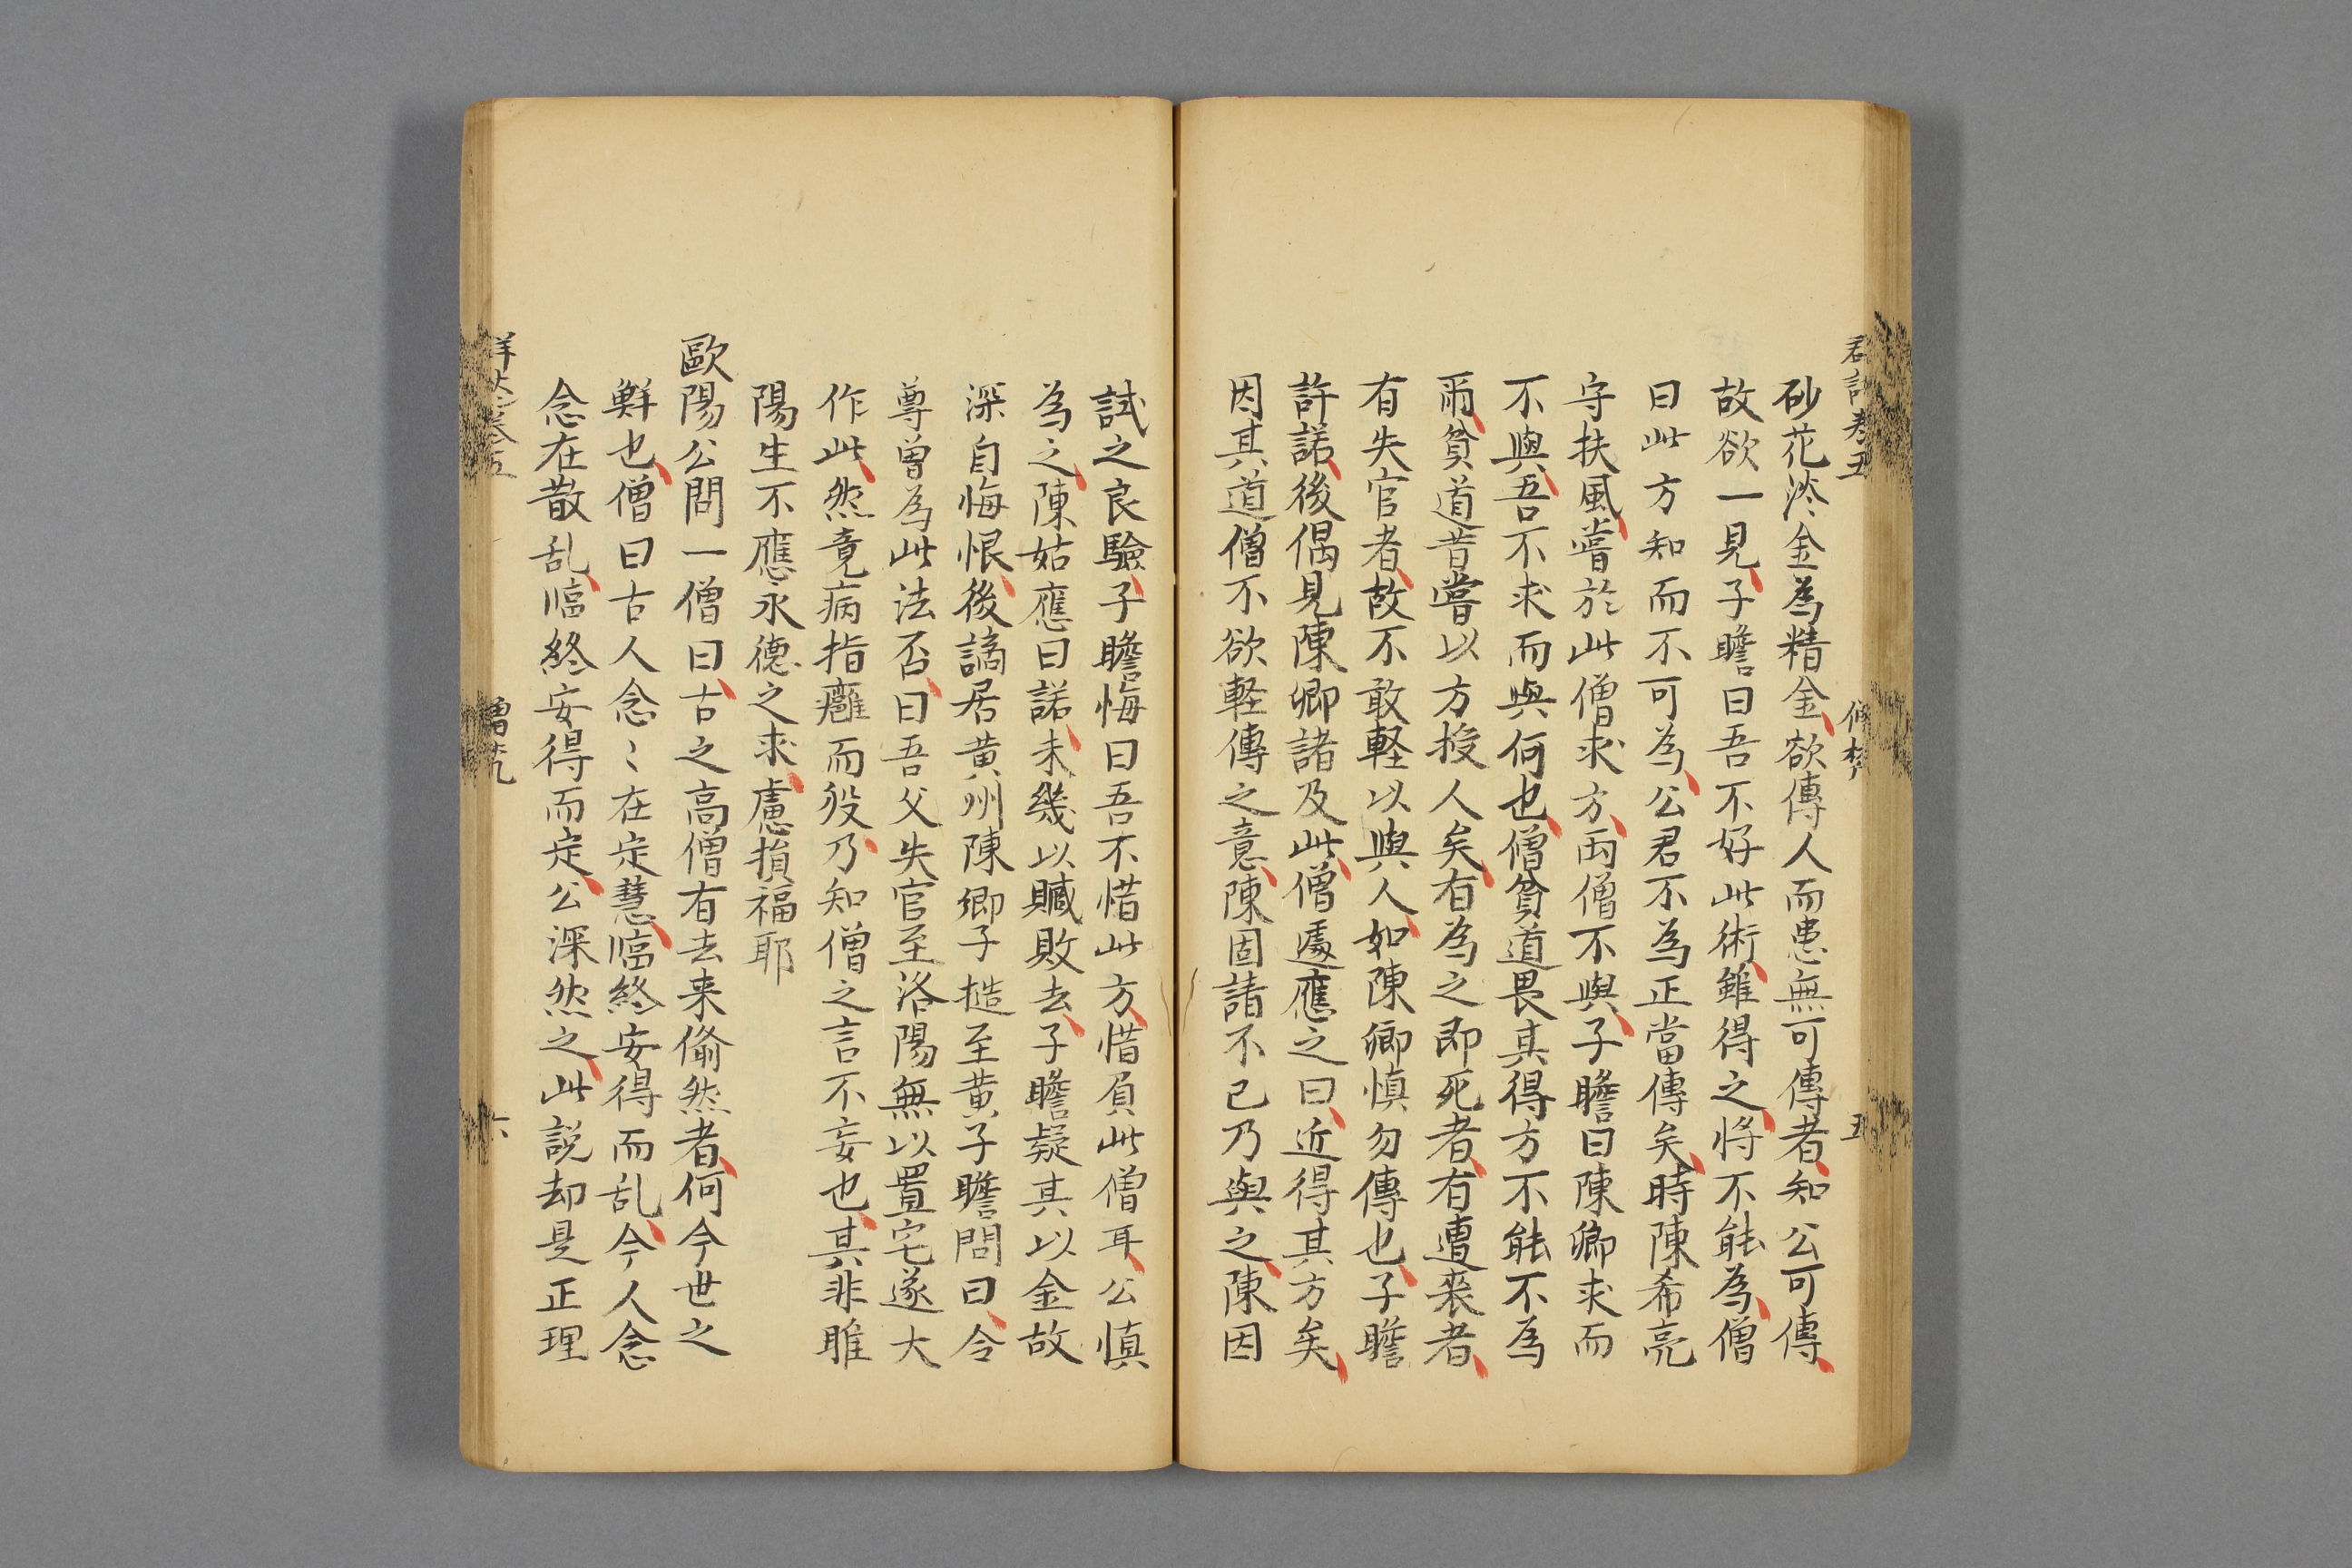 砂花淡金為精金欲傳人而患無可傳者知公可傳
故欲一見子瞻曰吾不好此術雖得之将不能為僧
曰此方知而不可為公君不為正當傳矣時陳希亮
守扶風甞於此僧求方而僧不與子瞻曰陳卿求而
不與吾不求而與何也僧貧道畏其得方不能不為
爾貧道昔甞以方授人矣有為之即死者有遭喪者
有失官者故不敢軽以與人如陳卿慎勿傳也子瞻
許諾後偶見陳卿諸及此僧遽應之曰近得其方矣
因其道僧不欲軽傳之意陳固請不已乃與之陳因
試之良驗子瞻悔曰吾不惜此方惜負此僧耳公慎
為之陳姑應曰諾未幾以贓敗去子瞻疑其以金故
深自悔恨後謫居黄州陳卿子慥至黄子瞻問曰令
尊曽為此法否曰吾父失官至洛陽無以置宅遂大
作此然竟病指癰而歿乃知僧之言不妄也其非睢
陽生不應永德之求慮損福耶
歐陽公問一僧曰古之高僧有去来翛然者何今世之
鮮也僧曰古人念〻在定慧臨終安得而乱今人念
念在散乱臨終安得而定公深然之此説却是正理
卷五
五
六